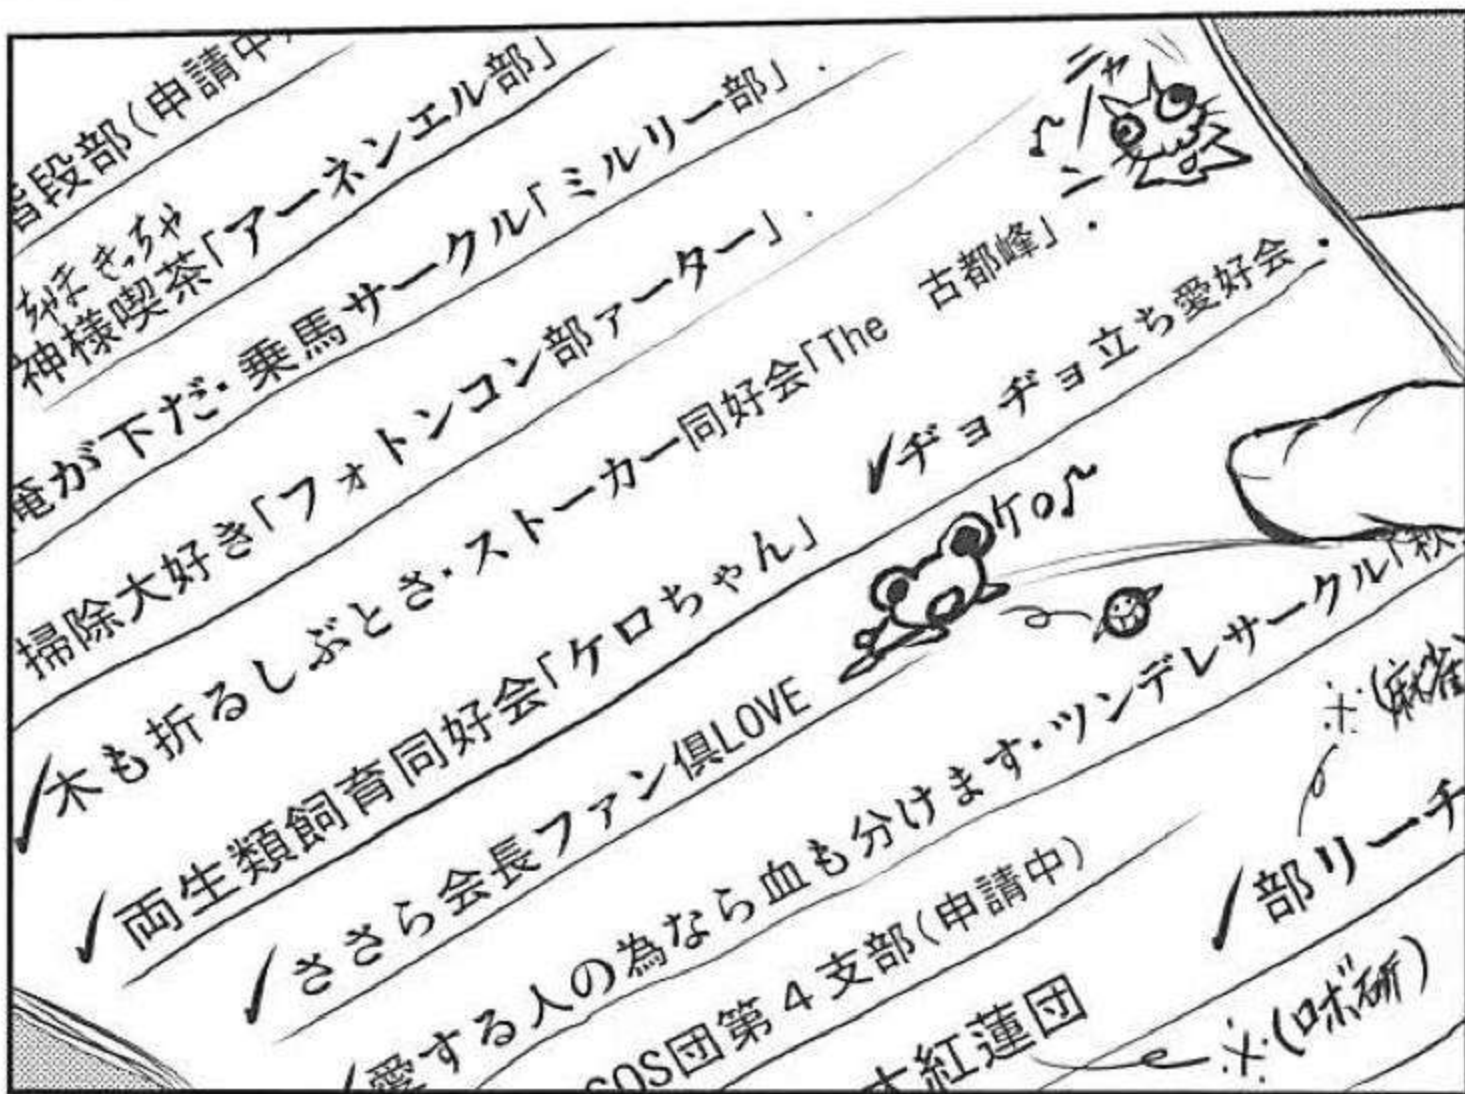 階段部（申請中）
ちゃま きっちゃ
神様喫茶「アーネンエル部」
俺が下だ・乗馬サークル「ミルリー部」.
掃除大好き「フォトンコン部ァーター」.
✓木も折るしぶとさ・ストーカー同好会「The 古都峰」.
ニャーン♪
✓両生類飼育同好会「ケロちゃん」
ケロ♪
✓ヂョヂョ立ち愛好会.
✓ささら会長ファン倶LOVE
✓愛する人の為なら血も分けます・ツンデレサークル「秋
SOS団第4支部（申請中）
大紅蓮団
※（ロボ研）
✓部リーチ
※（麻雀